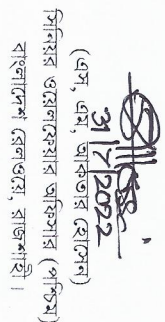 31/7/2022
(এস, এম, আকতার হোসেন)
সিনিয়র ওয়েলফেয়ার অফিসার (পশ্চিম)
বাংলাদেশ রেলওয়ে, রাজশাহী।